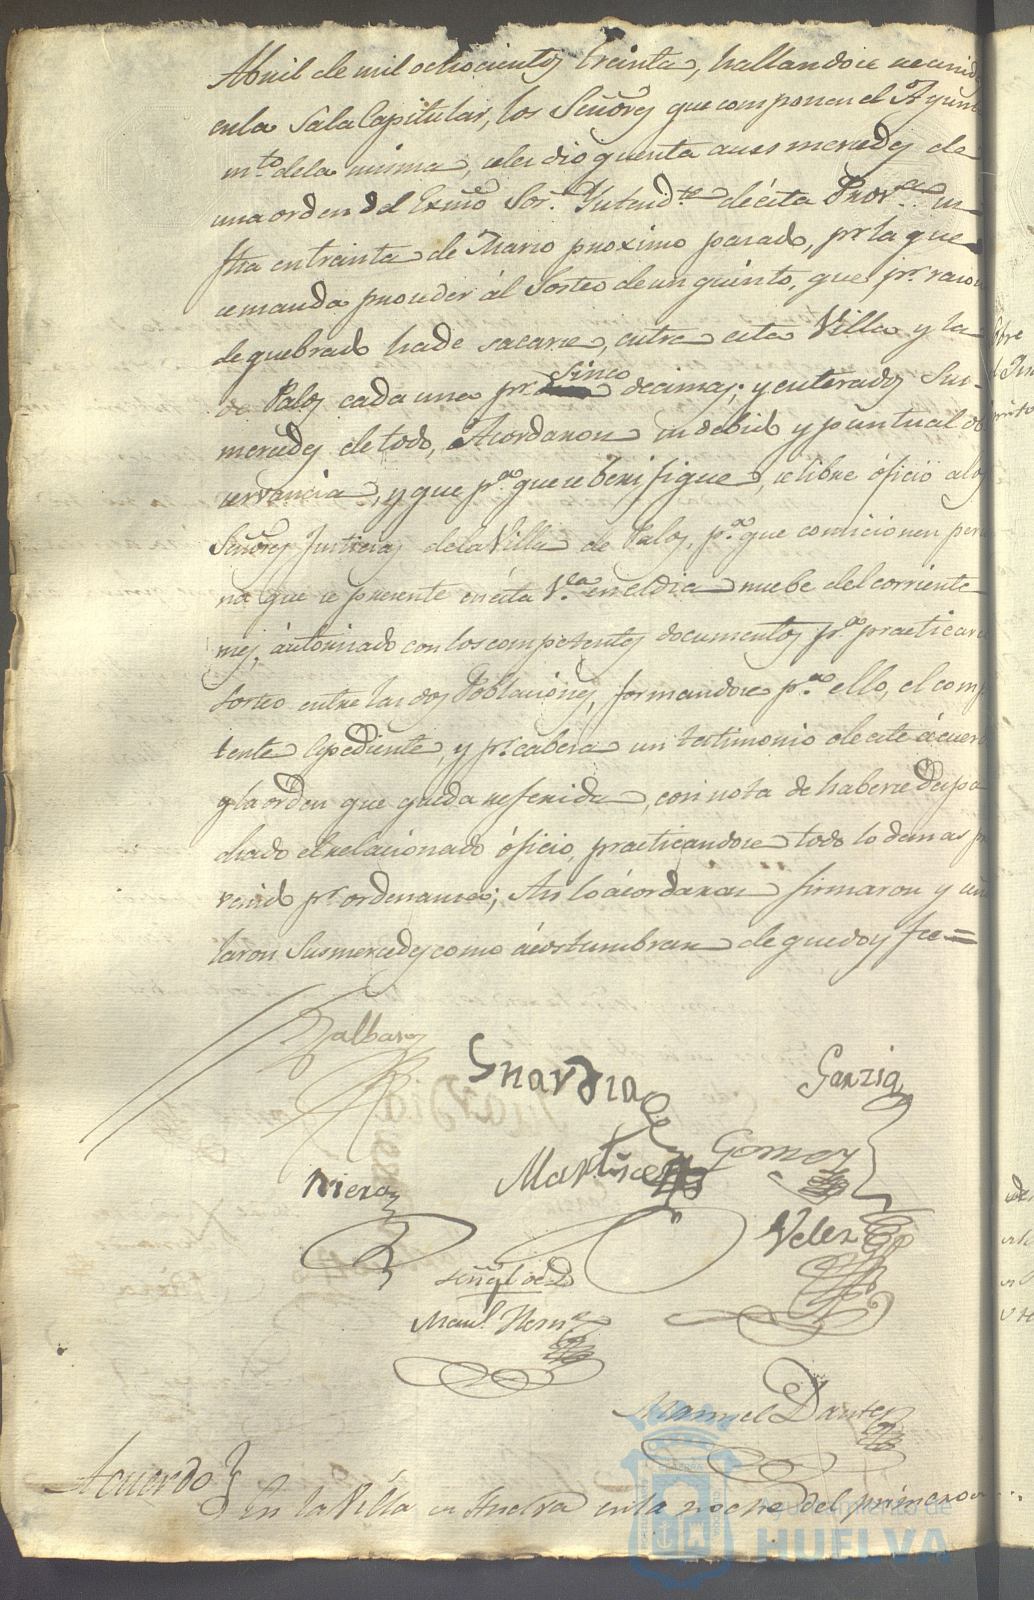 Abril de mil ochocientos treinta, hallandose reunido
en la Sala Capitular, los Señores que componen el Ayunt
mto. de la misma, se les dio quenta a sus mercedes de
una orden del Exmo Sor. Yntendte. de esta Prova. su
fha en treinta de Marzo proximo pasado, pr. la que
se manda proceder al Sorteo de un quinto, que pr. razon
de quebrado hade sacarse, entre esta Villa y la
de Palos cada una pr. sinco decimas; y enterados Sus
mercedes de todo, Acordaron su debido y puntual ob
servancia, y que pa. que se berifique, se libre óficio a los
Señores Justicias de la Villa de Palos, pa. que comicionen perso
na que se presente en esta Va. en el dia nuebe del corriente
mes, áutorisado con los competentes documentos pa. practicar
Sorteo entre las dos Poblaciones, formandose pa. ello, el comp
tente Espediente, y pr. cabesa un testimonio de este ácuer
y la orden que queda referida, con nota de haberse despa
chado el relacionado óficio, practicandose todo lo demas pre
venido pr. ordenansa; Asi lo ácordaron firmaron y señ
laron Sus mercedes como ácostumbran de que doy fee =
Galbas
Guardia
Garzia
Gomes
Martines
Riera
Velez
señal de D
Manl. Hern
Manuel Dantes
Acuerdo} En la Villa de Huelva en la noche del primero
bre
Ayuntamiento de
HUELVA